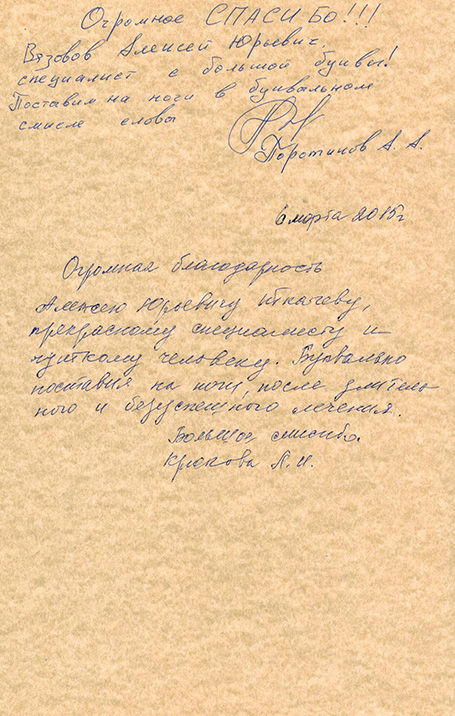 Огромное СПАСИБО!!!
Вязовов Алексей Юрьевич,
специалист с большой буквы!
Поставил на ноги в буквальном
смысле слова
Паротинов А. А.
6 марта 2015г
Огромная благодарность
Алексею Юрьевичу
прекрасному специалисту и
чуткому человеку. Буквально
поставил на ноги, после длитель
ного и безуспешного лечения.
Большое спасибо.
Крокова Л. И.